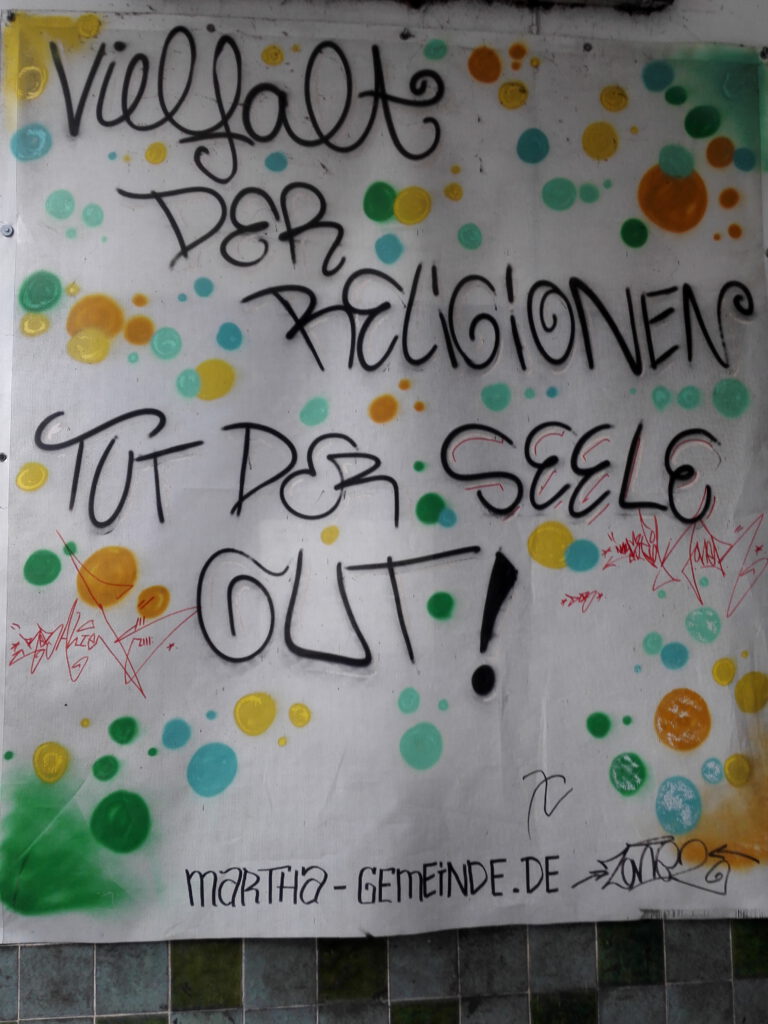 Vielfalt
DER
RELIGIONEN
TUT DER SEELE
GUT!
MARTHA-GEMEINDE.DE